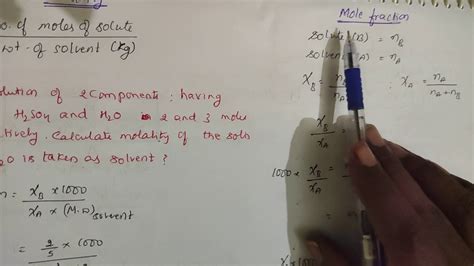 o. of moles of solute
wt. of solvent (kg)
olution of 2 Components; having
H2SO4 and H2O in 2 and 3 mole
tively. Calculate molality of the soln
2O is taken as solvent ?
m = χB × 1000
χA × (M.W) solvent
= 2/5 × 1000
Mole fraction
Solute (B) = nB
Solvent (A) = nA
χB = nB / nA
; χA = nA / nA + nB
χB / χA =
1000 × χB / χA =
=
χB × 1000